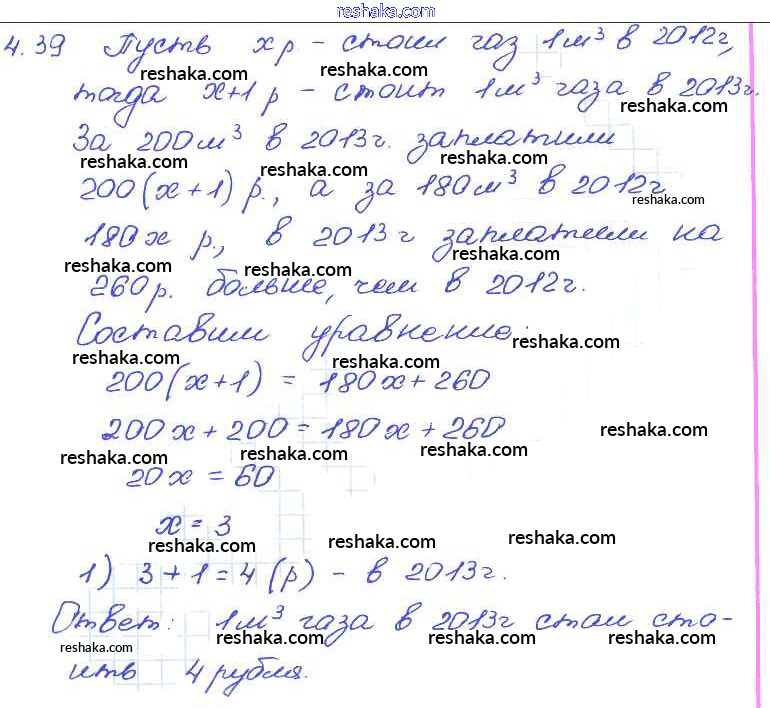 reshaka.com
4.39 Пусть х р - стоил газ 1м³ в 2012г,
reshaka.com reshaka.com
тогда х+1 р - стоит 1м³ газа в 2013г.
reshaka.com
За 200м³ в 2013г. заплатили
reshaka.com reshaka.com reshaka.com
200(х+1) р., а за 180м³ в 2012г
reshaka.com
180х р, в 2013г заплатили на
reshaka.com reshaka.com reshaka.com
260р. больше, чем в 2012г.
Составим уравнение:
reshaka.com reshaka.com reshaka.com
200(х+1) = 180х + 260
200х + 200 = 180х + 260
reshaka.com reshaka.com reshaka.com reshaka.com
20х = 60
х = 3
reshaka.com reshaka.com reshaka.com
1) 3+1=4 (р) - в 2013г.
Ответ: 1м³ газа в 2013г стал сто-
reshaka.com reshaka.com reshaka.com reshaka.com
ить 4 рубля.